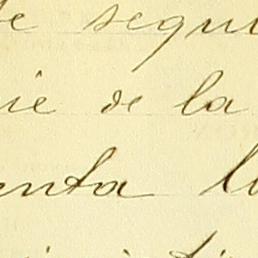 de segui
ie de la
enta lo